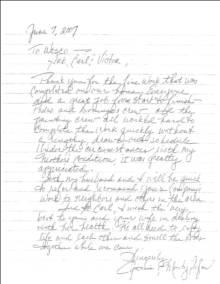 June 7, 2007
To Wesco -
Jeb, Carl, Victor,
Thank you for the fine work that was
completed on our house. Everyone
did a great job from start to finish.
and crew. and the
painting crew all worked hard to
complete the work quickly without
a lengthy, drawn-out schedule
Under the circumstances with my
husband's condition, it was greatly
appreciated.
Both my husband and I will be quick
to refer and recommend your company's
work to neighbors and others in the area
And to Carl, I wish the very
best to you and your wife in dealing
with her health. We all need to enjoy
life and each other and smell the roses
together while we can.
Sincerely,